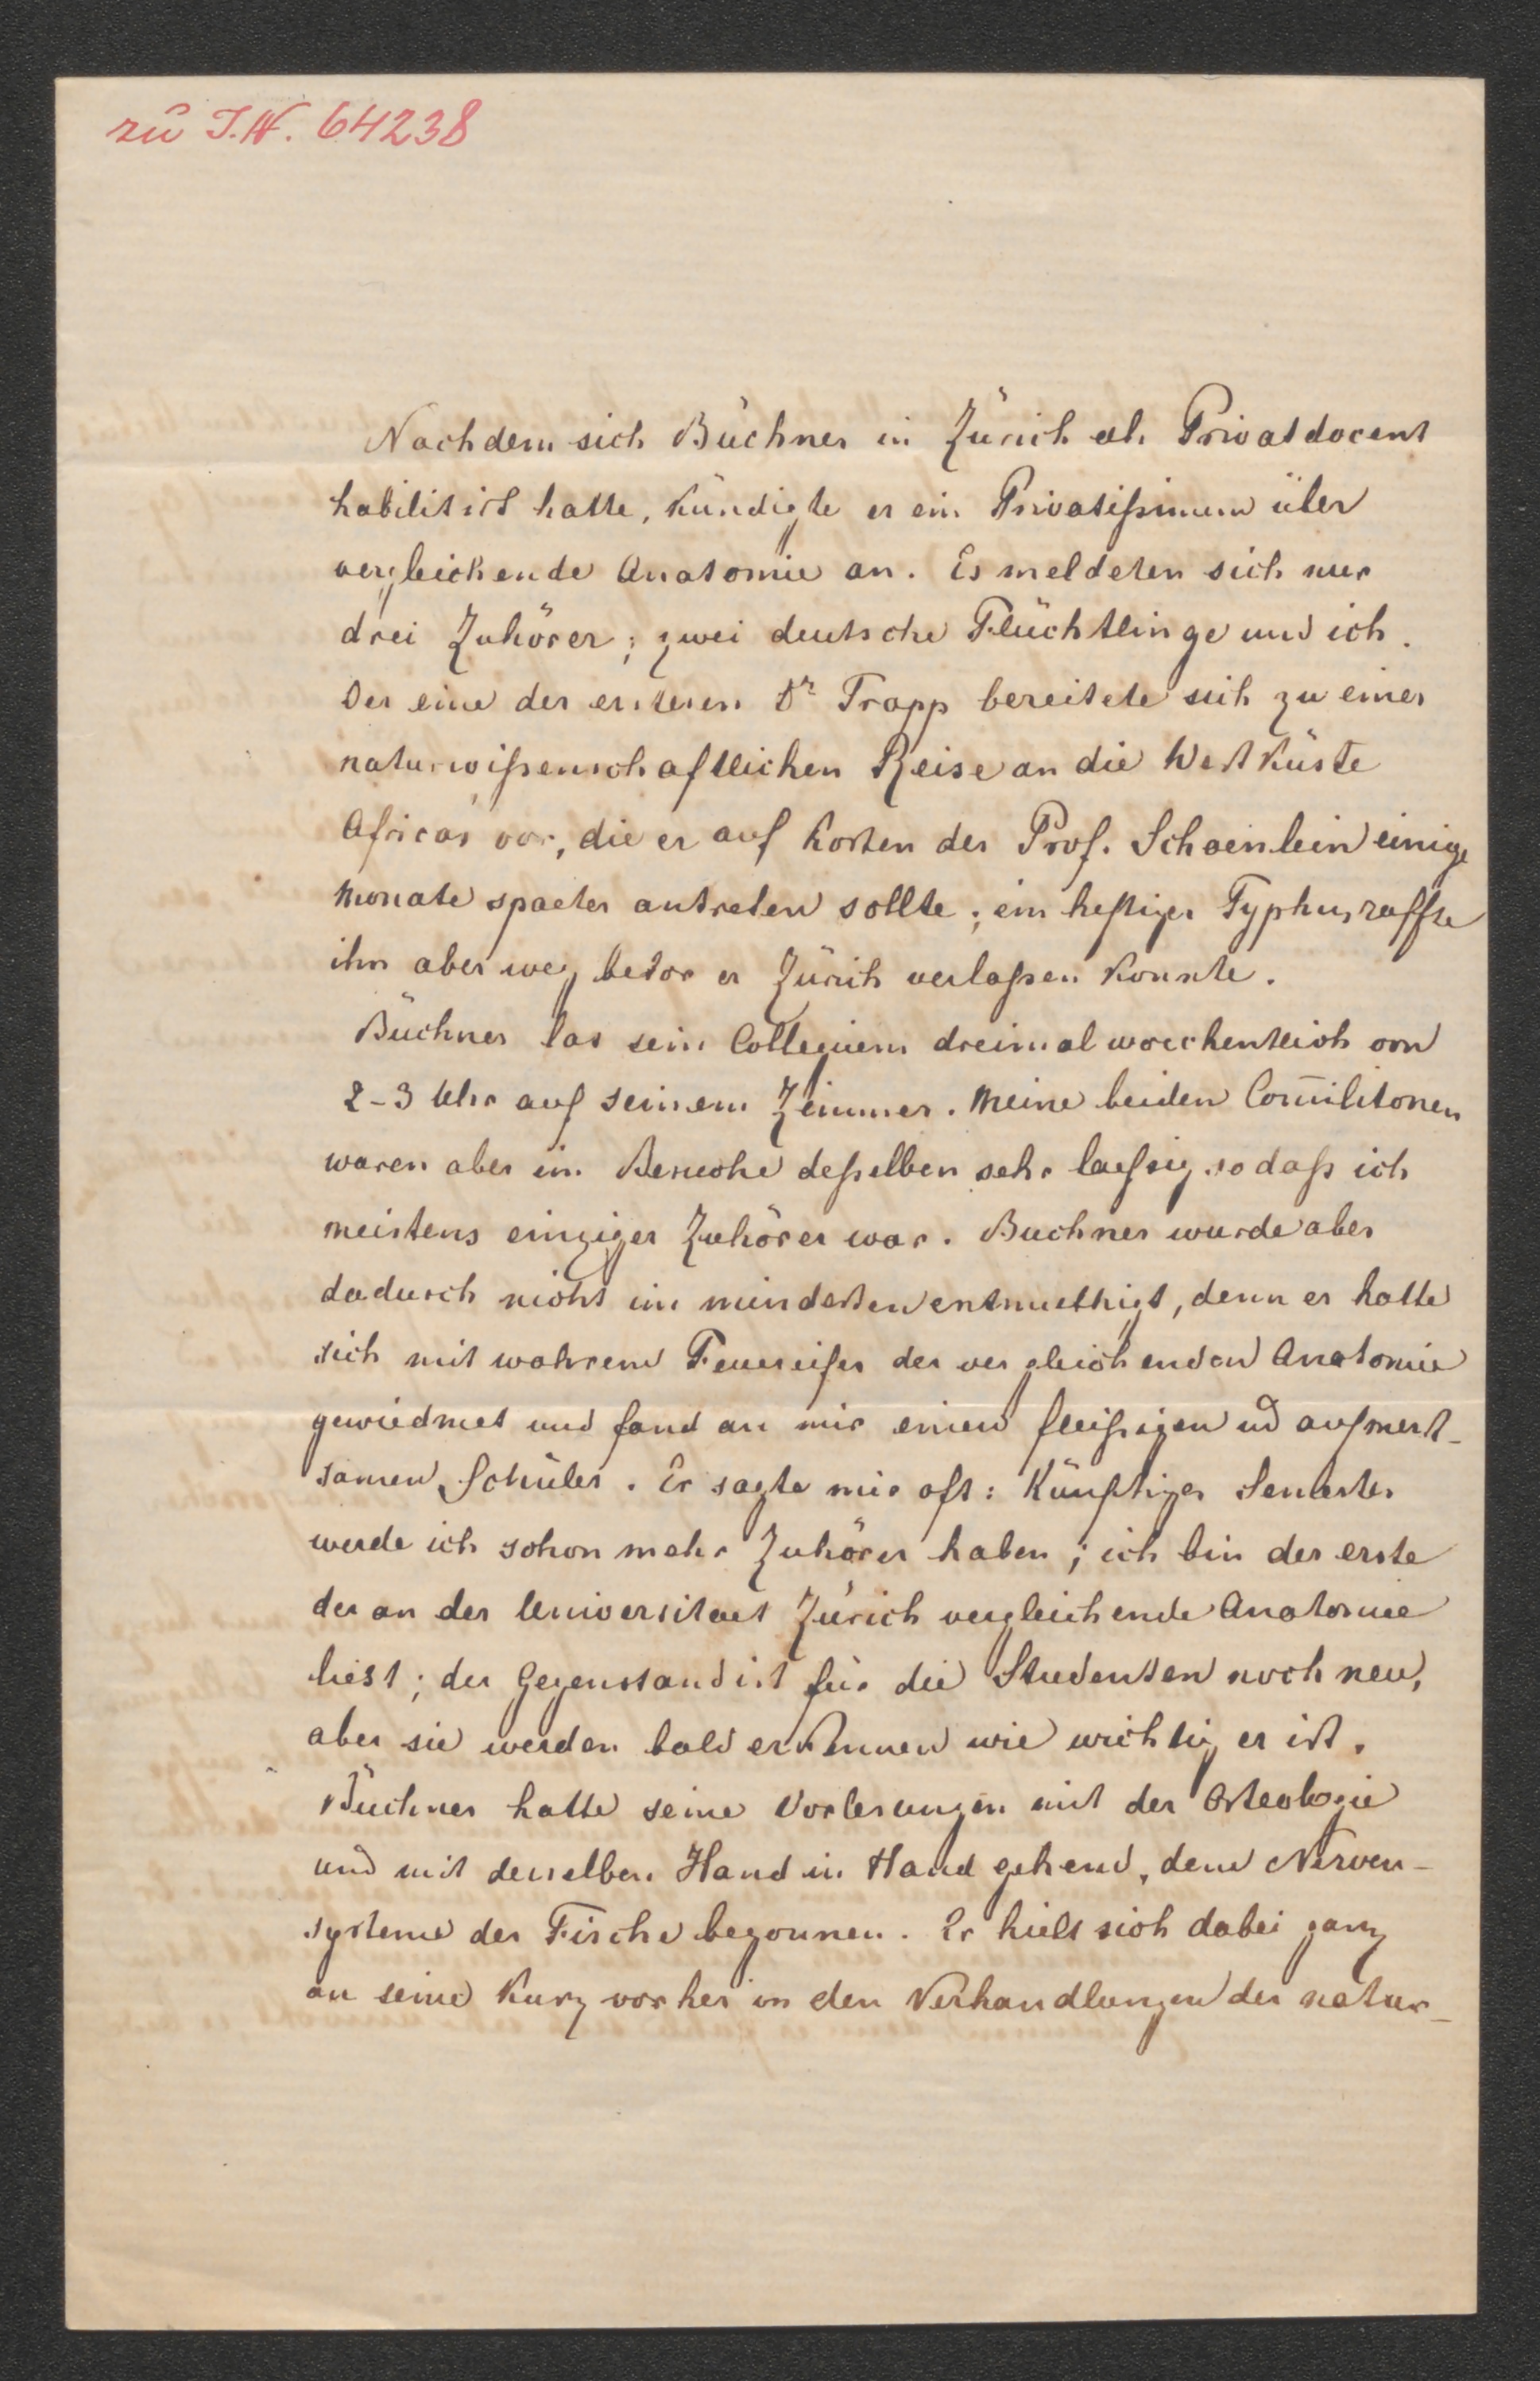 zu I.N. 64238
Nachdem sich Büchner in Zürich als Privatdocent
habilitirt hatte, kündigte er ein Privatißimum über
vergleichende Anatomie an. Es meldeten sich nur
drei Zuhörer; zwei deutsche Flüchtlinge und ich.
Der eine der ersteren Dr Trapp bereitete sich zu einer
naturwißenschaftlichen Reise an die Westküste
Africas vor, die er auf Kosten des Prof. Schoenlein einige
Monate spaeter antreten sollte; ein heftiger Typhus raffte
ihn aber weg bevor er Zürich verlaßen konnte.
Büchner las sein Collegium dreimal woechentlich von
2-3 Uhr auf seinem Zimmer. Meine beiden Com̅ilitonen
waren aber im Besuche deßelben sehr laeßig so daß ich
meistens einziger Zuhörer war. Buchner wurde aber
dadurch nicht im mindesten entmuthigt, denn er hatte
sich mit wahrem Feuereifer der vergleichenden Anatomie
gewiedmet und fand an mir einen fleißigen ud aufmerk-
samen Schüler. Er sagte mir oft: Künftiges Semester
werde ich schon mehr Zuhörer haben; ich bin der erste
der an der Universitaet Zürich vergleichende Anatomie
liest; der Gegenstand ist für die Studenten noch neu,
aber sie werden bald erkennen wie wichtig er ist.
Büchner hatte seine Vorlesungen mit der Osteologie
und mit derselben Hand in Hand gehend, dem Nerven-
systeme der Fische begonnen. Er hielt sich dabei ganz
an seine kurz vorher in den Verhandlungen der natur-